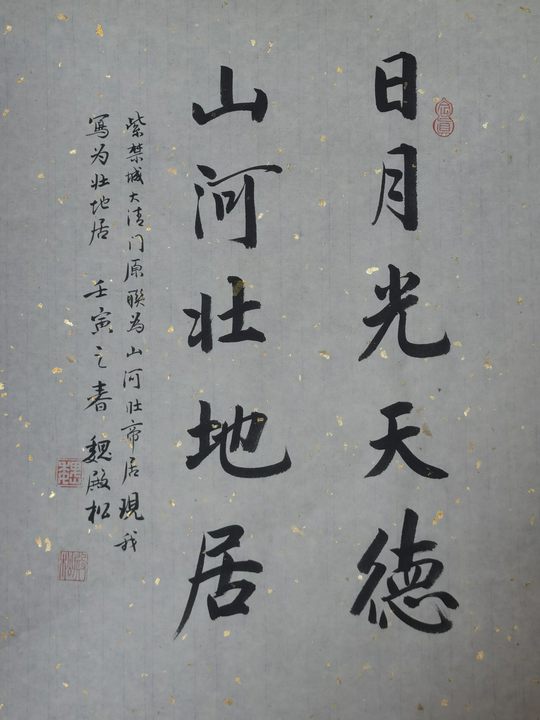 日月光天德
山河壮地居
紫禁城大清门原联为山河壮帝居現我
寫为壮地居 壬寅之春 魏殿松